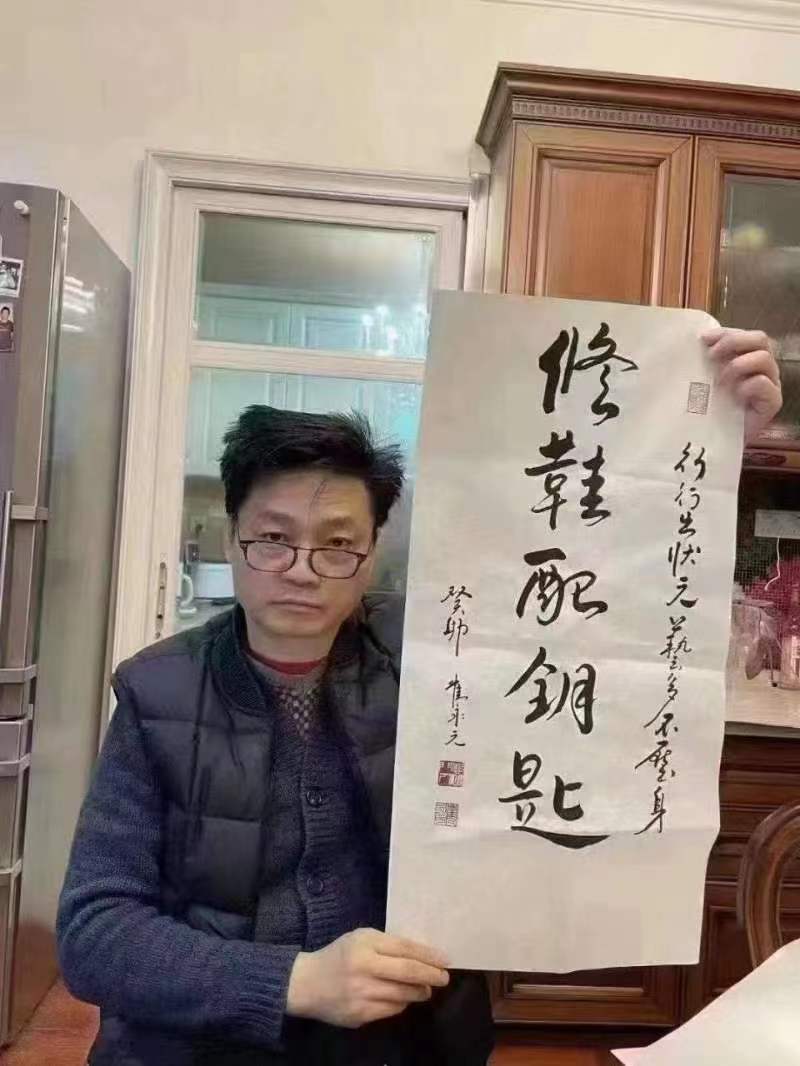 行行出状元 藝多不壓身
修鞋配钥匙
癸卯 崔永元